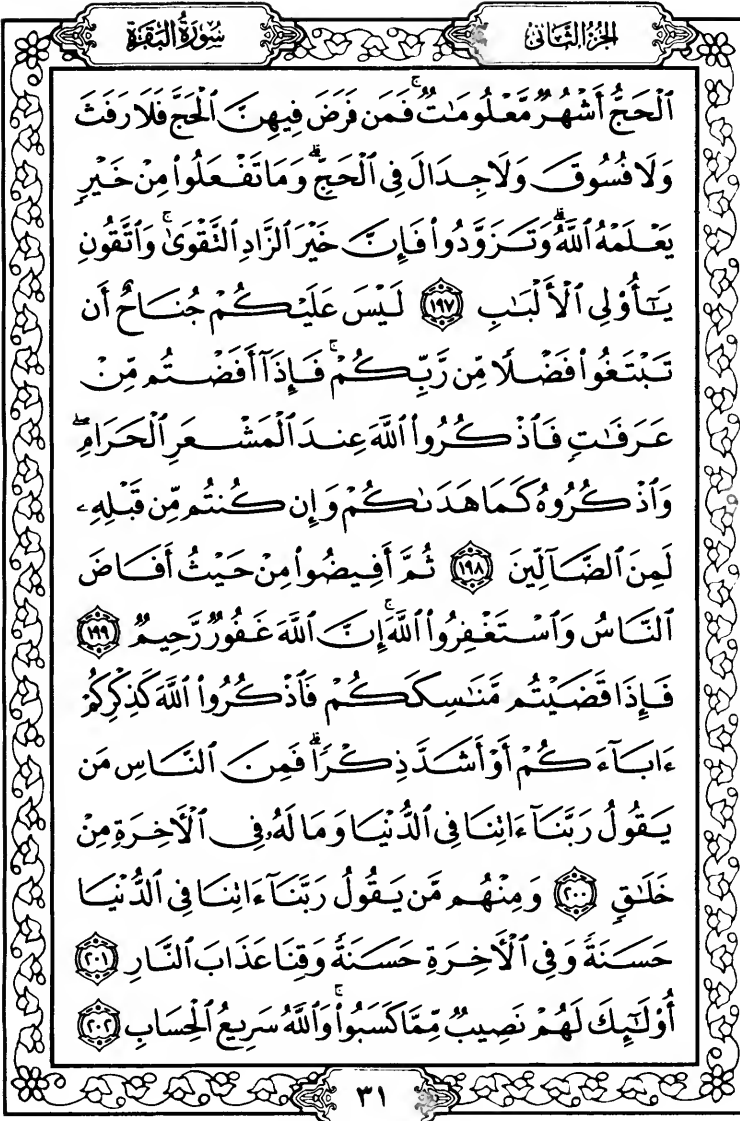 سُورَةُ البَقَرَةِ
الجُزْءُ الثَّانِي
ٱلْحَجُّ أَشْهُرٌ مَّعْلُومَٰتٌ ۚ فَمَن فَرَضَ فِيهِنَّ ٱلْحَجَّ فَلَا رَفَثَ
وَلَا فُسُوقَ وَلَا جِدَالَ فِى ٱلْحَجِّ ۗ وَمَا تَفْعَلُوا۟ مِنْ خَيْرٍ
يَعْلَمْهُ ٱللَّهُ ۗ وَتَزَوَّدُوا۟ فَإِنَّ خَيْرَ ٱلزَّادِ ٱلتَّقْوَىٰ ۚ وَٱتَّقُونِ
يَٰٓأُو۟لِى ٱلْأَلْبَٰبِ ١٩٧ لَيْسَ عَلَيْكُمْ جُنَاحٌ أَن
تَبْتَغُوا۟ فَضْلًا مِّن رَّبِّكُمْ ۚ فَإِذَآ أَفَضْتُم مِّنْ
عَرَفَٰتٍ فَٱذْكُرُوا۟ ٱللَّهَ عِندَ ٱلْمَشْعَرِ ٱلْحَرَامِ ۖ
وَٱذْكُرُوهُ كَمَا هَدَىٰكُمْ وَإِن كُنتُم مِّن قَبْلِهِۦ
لَمِنَ ٱلضَّآلِّينَ ١٩٨ ثُمَّ أَفِيضُوا۟ مِنْ حَيْثُ أَفَاضَ
ٱلنَّاسُ وَٱسْتَغْفِرُوا۟ ٱللَّهَ ۚ إِنَّ ٱللَّهَ غَفُورٌ رَّحِيمٌ ١٩٩
فَإِذَا قَضَيْتُم مَّنَٰسِكَكُمْ فَٱذْكُرُوا۟ ٱللَّهَ كَذِكْرِكُمْ
ءَابَآءَكُمْ أَوْ أَشَدَّ ذِكْرًا ۗ فَمِنَ ٱلنَّاسِ مَن
يَقُولُ رَبَّنَآ ءَاتِنَا فِى ٱلدُّنْيَا وَمَا لَهُۥ فِى ٱلْأَخِرَةِ مِنْ
خَلَٰقٍ ٢٠٠ وَمِنْهُم مَّن يَقُولُ رَبَّنَآ ءَاتِنَا فِى ٱلدُّنْيَا
حَسَنَةً وَفِى ٱلْأَخِرَةِ حَسَنَةً وَقِنَا عَذَابَ ٱلنَّارِ ٢٠١
أُو۟لَٰٓئِكَ لَهُمْ نَصِيبٌ مِّمَّا كَسَبُوا۟ ۚ وَٱللَّهُ سَرِيعُ ٱلْحِسَابِ ٢٠٢
٣١